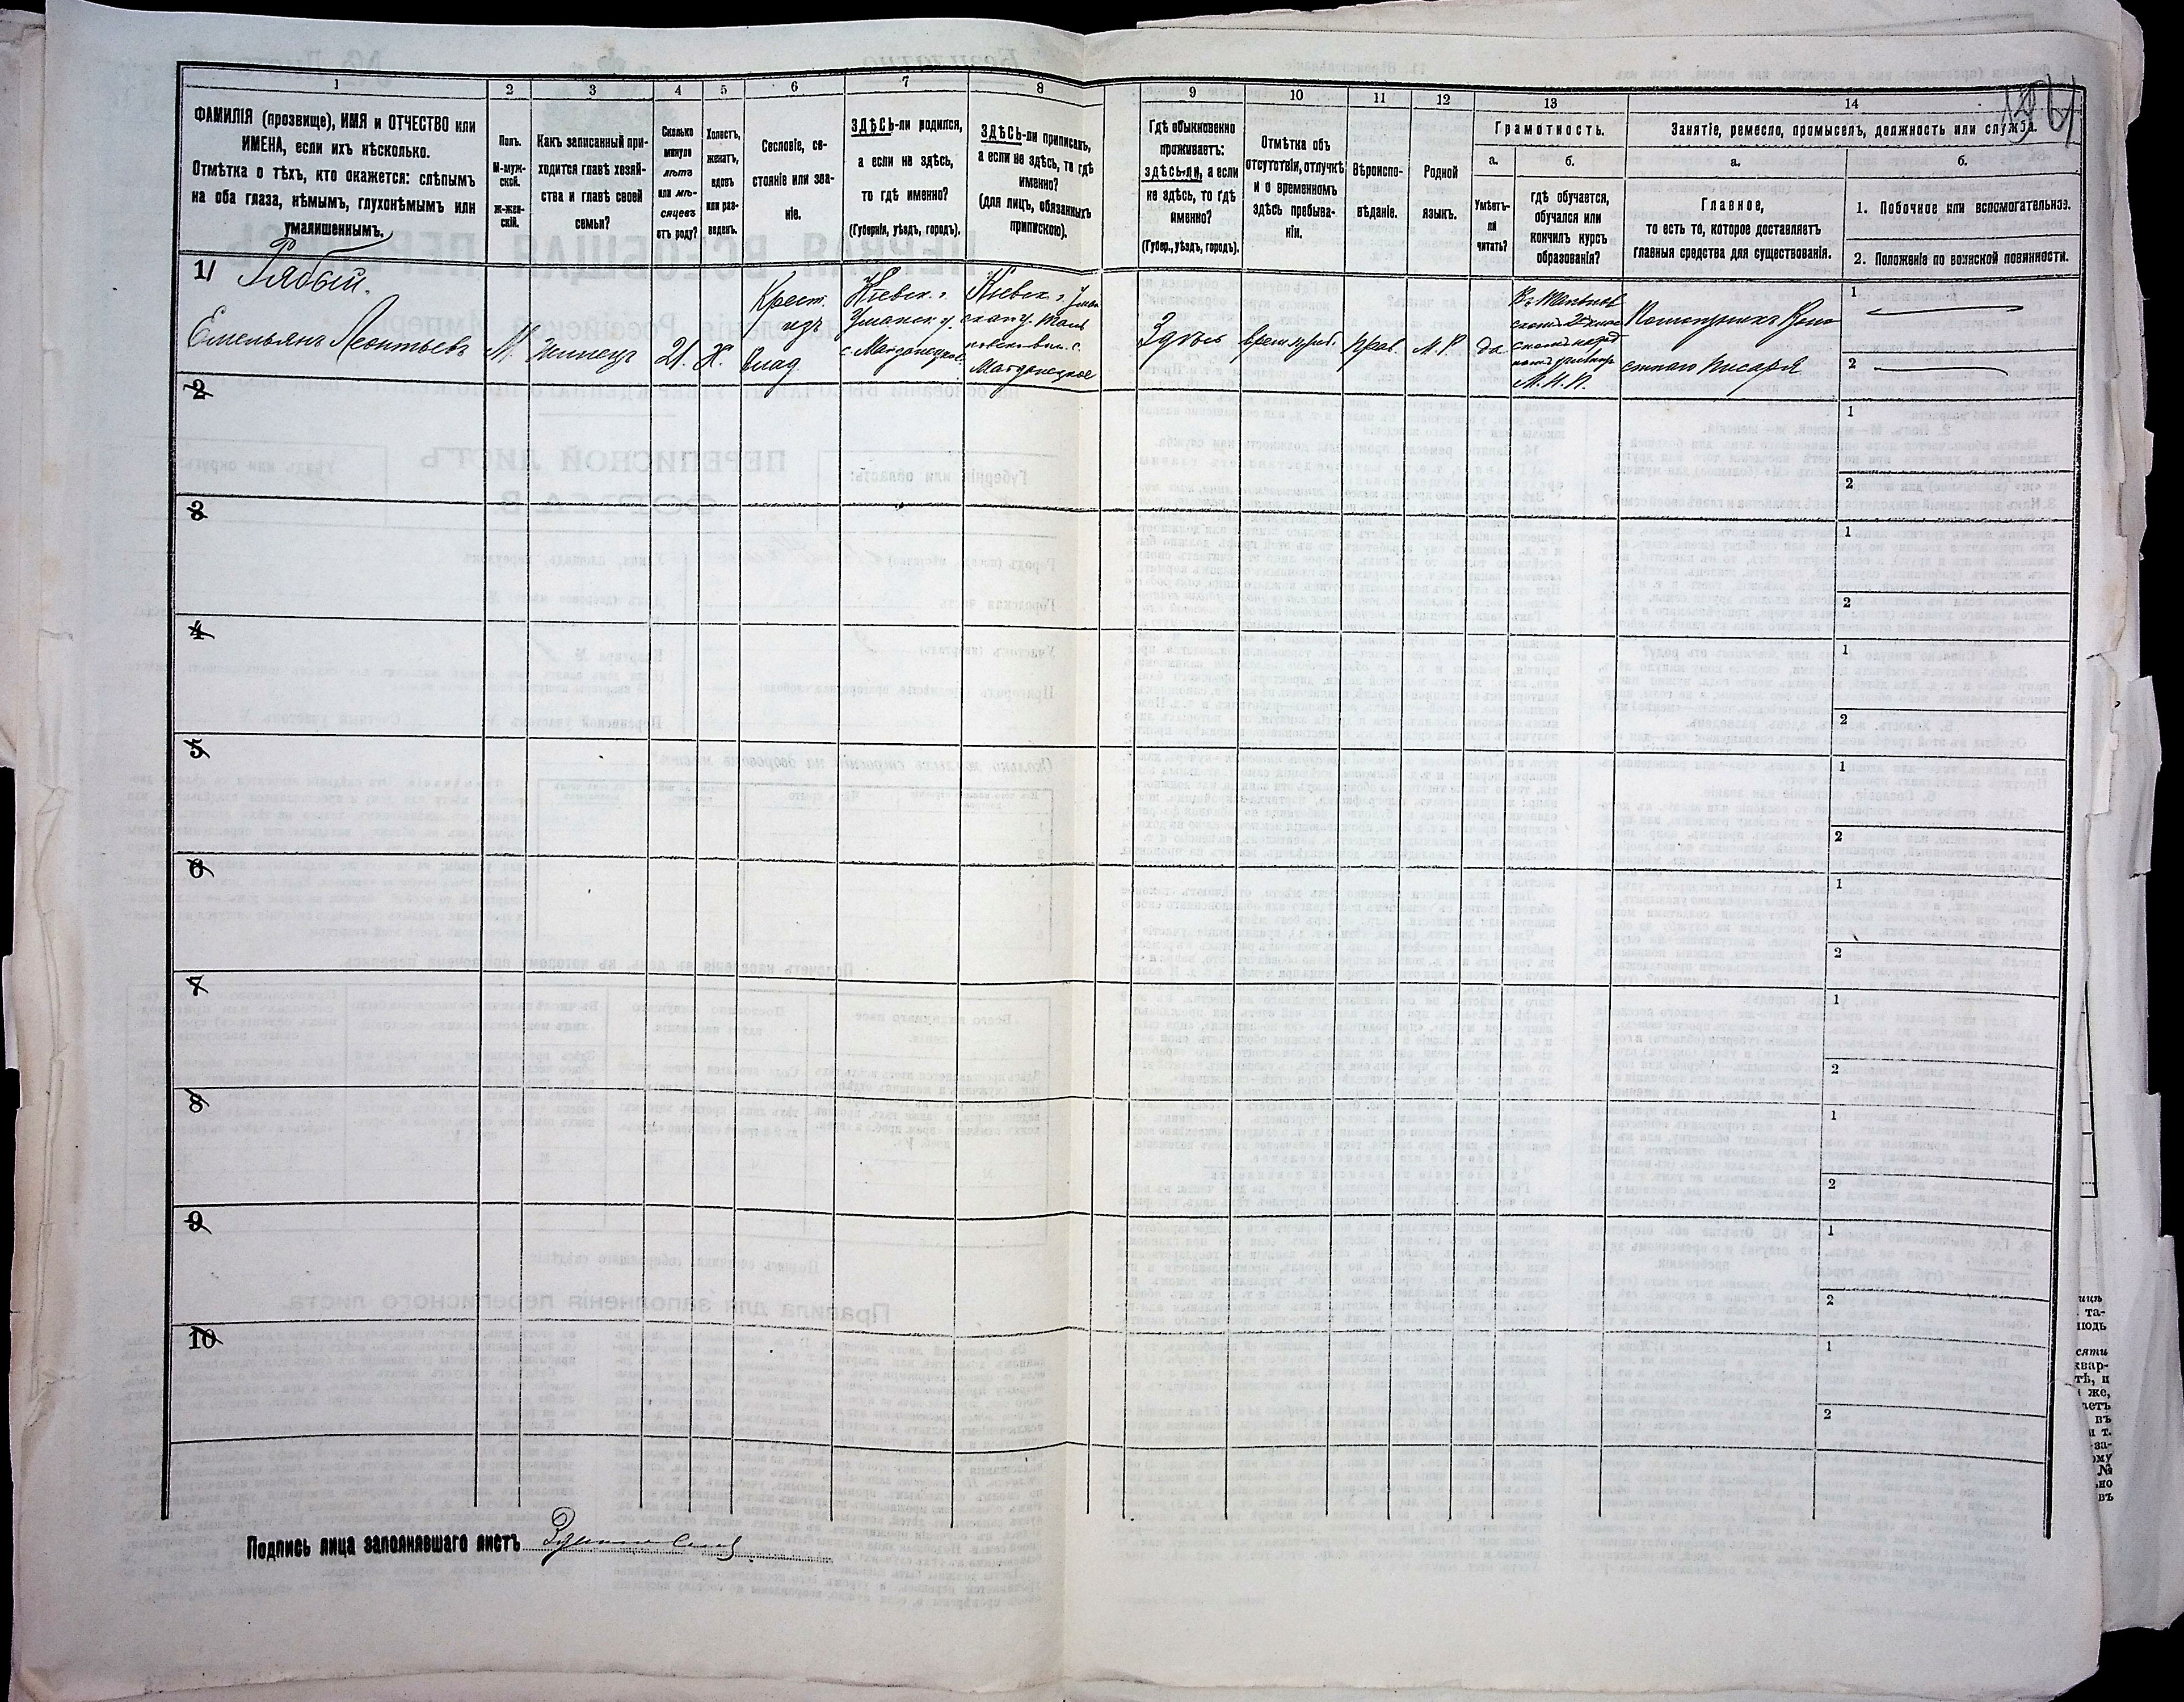 1
2
3
4
5
6
7
8
9
10
11
12
13
14
ФАМИЛІЯ (прозвище), ИМЯ и ОТЧЕСТВО или
ИМЕНА, если ихъ нѣсколько.
Отмѣтка о тѣхъ, кто окажется: слѣпымъ
на оба глаза, нѣмымъ, глухонѣмымъ или
умалишеннымъ.
Полъ.
М-муж-
ской.
ж-жен-
скій.
Какъ записанный при-
ходится главѣ хозяй-
ства и главѣ своей
семьи?
Сколько
минуло
лѣтъ
или мѣ-
сяцевъ
отъ роду?
Холостъ,
женатъ,
вдовъ
или раз-
веденъ.
Сословіе, со-
стояніе или зва-
ніе.
ЗДѢСЬ-ли родился,
а если не здѣсь,
то гдѣ именно?
(Губернія, уѣздъ, городъ).
ЗДѢСЬ-ли приписанъ,
а если не здѣсь, то гдѣ
именно?
(для лицъ, обязанныхъ
припискою).
Гдѣ обыкновенно
проживаетъ:
здѣсь-ли, а если
не здѣсь, то гдѣ
именно?
(Губер., уѣздъ, городъ).
Отмѣтка объ
отсутствіи, отлучкѣ
и о временномъ
здѣсь пребыва-
ніи.
Вѣроиспо-
вѣданіе.
Родной
языкъ.
Грамотность.
а.
б.
Умѣетъ-
ли
читать?
гдѣ обучается,
обучался или
кончилъ курсъ
образованія?
Занятіе, ремесло, промыселъ, должность или служба.
а.
б.
Главное,
то есть то, которое доставляетъ
главныя средства для существованія.
1. Побочное или вспомогательное.
2. Положеніе по воинской повинности.
1/ Рябый.
Емельянъ Леонтьевъ
М.
Жилецъ
21.
Х.
Крест.
изъ
влад.
Кіевск. г.
Уманск. у.
с. Майданецкое
Кіевск. г. Уман
скаго у. Таль
новск. вол. с.
Майданецкое
Здѣсь
врем. преб.
прав.
М. Р.
да
Въ Тальнов
М. Н. П.
Помощникъ Воло
стного Писаря
1
2
2
1
2
3
1
2
4
1
2
5
1
2
6
1
2
7
1
2
8
1
2
9
1
2
10
1
2
Подпись лица заполнявшаго листъ